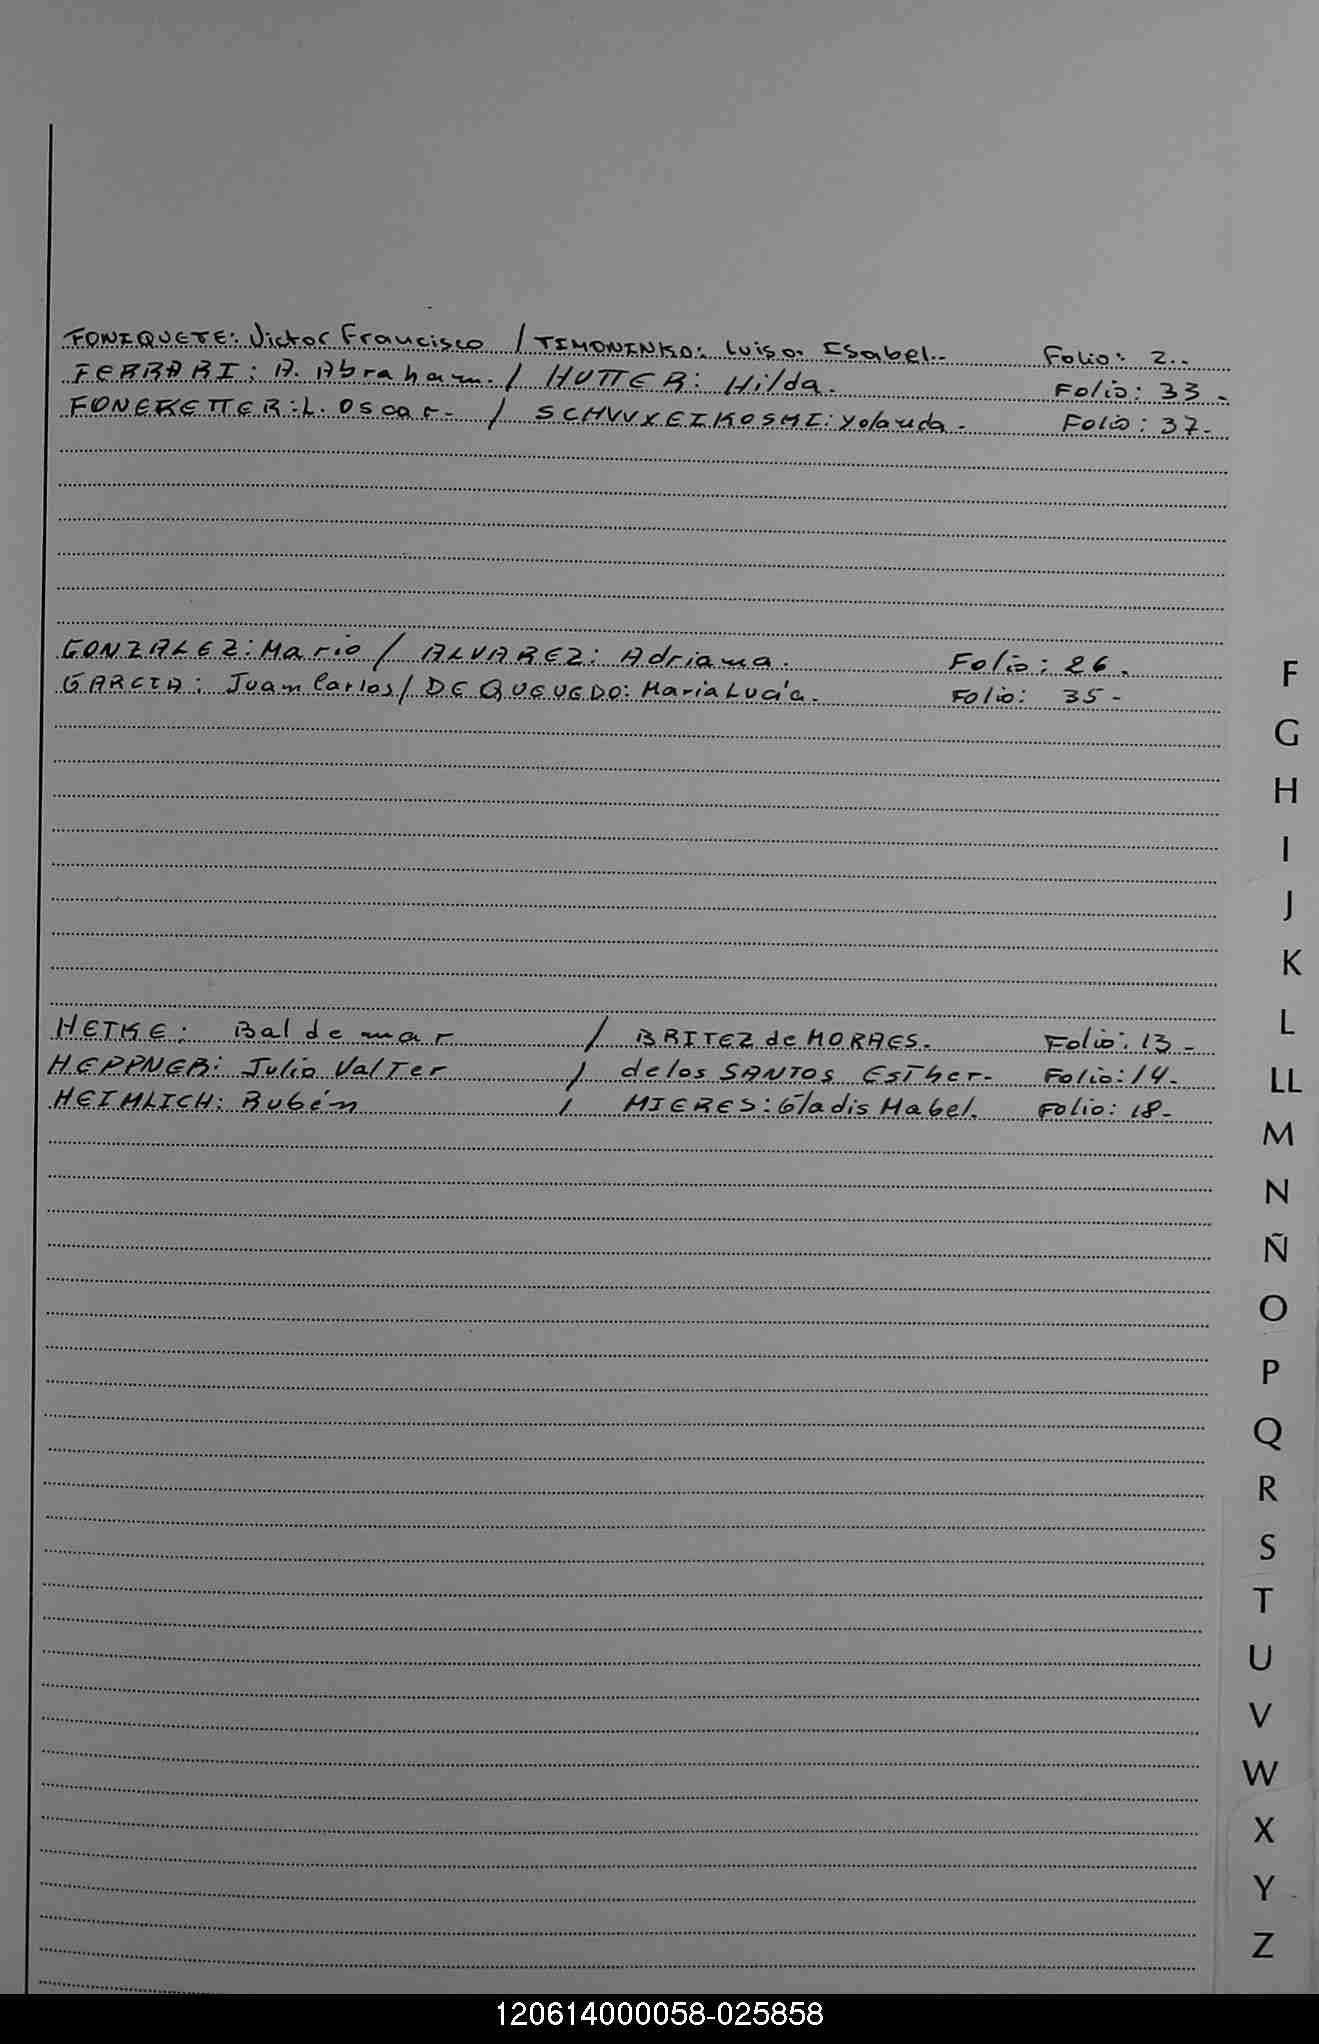 FONIQUETE: Victor Francisco / TIMONINKO: Luisa Isabel.- Folio: 2..
FERRARI: A. Abraham. / HUTTER: Hilda. Folio: 33-
FONEKETTER: L. Oscar.- / SCHVVXEIKOSKI: Yolanda- Folio: 37-
GONZALEZ: Mario / ALVAREZ: Adriana. Folio: 26.
GARCIA: Juan Carlos / DE QUEVEDO: Maria Lucía. Folio: 35-
HETKE: Baldemar / BRITEZ de MORAES. Folio: 13-
HEPPNER: Julio Valter / de los SANTOS Esther- Folio: 14-
HEIMLICH: Rubén / MIERES: Gladis Mabel. Folio: 18-
F
G
H
I
J
K
L
LL
M
N
Ñ
O
P
Q
R
S
T
U
V
W
X
Y
Z
120614000058-025858